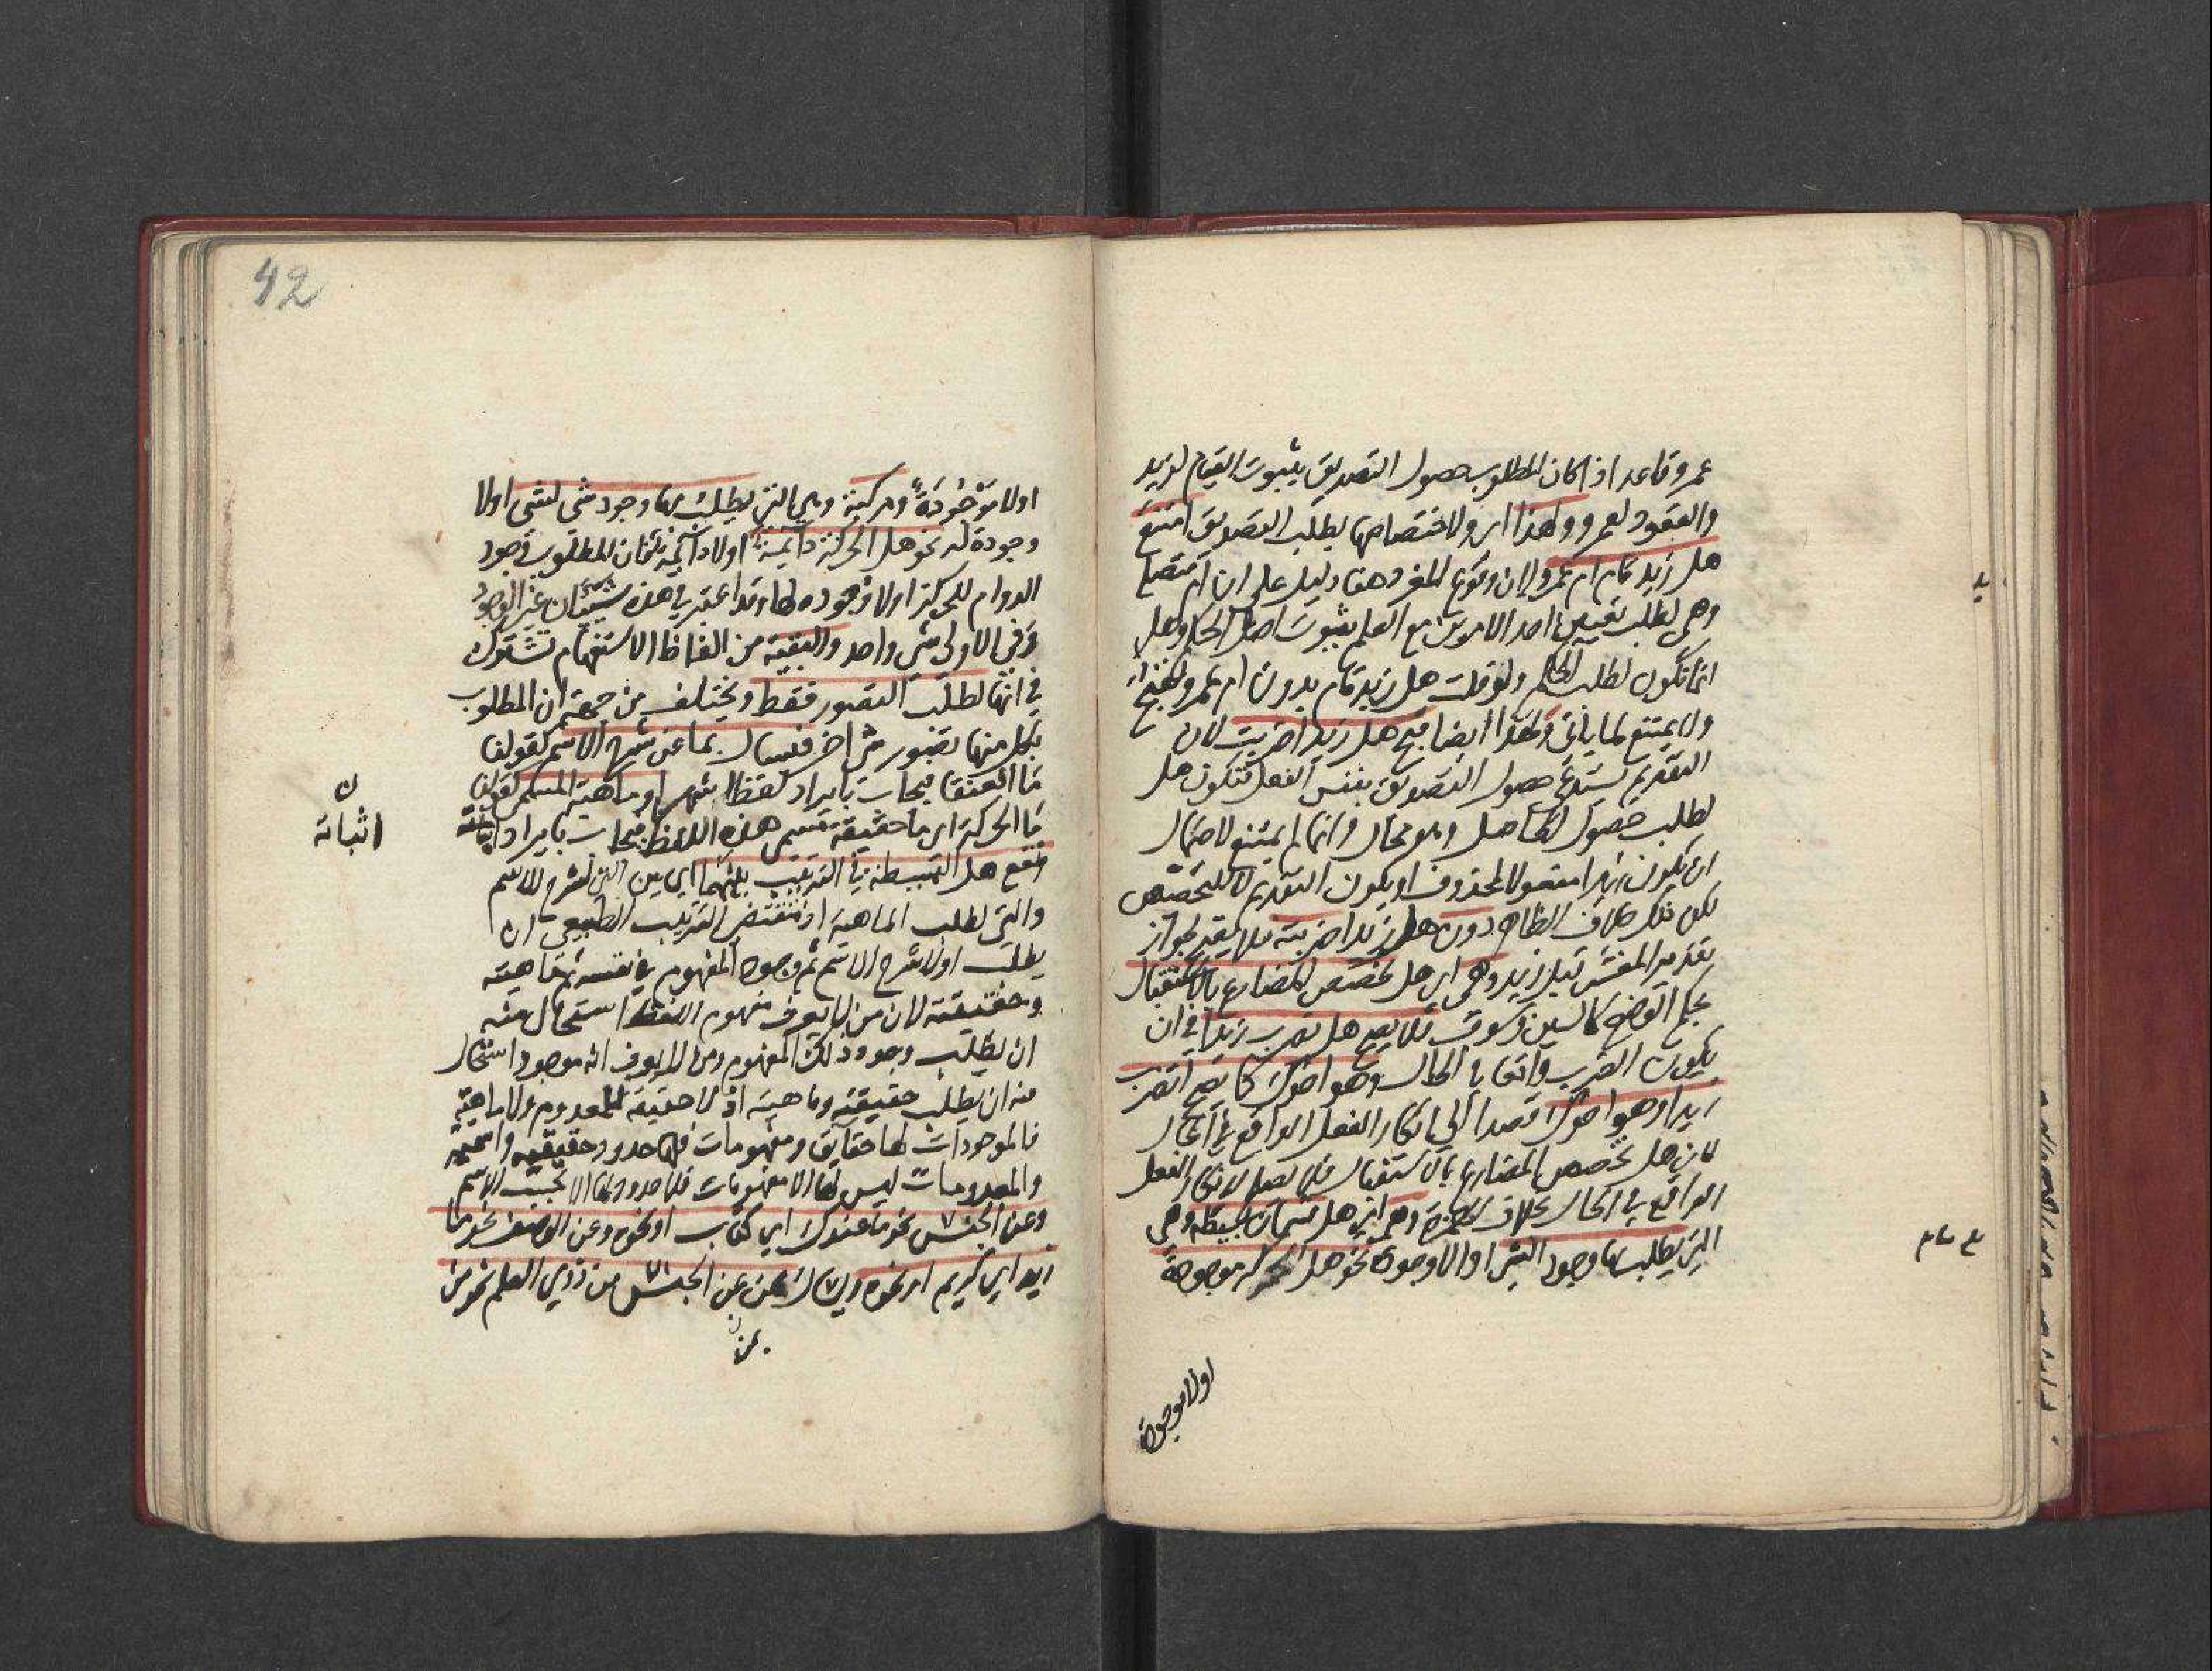 عمرو قاعد اذا كان المطلوب حصول التصديق بثبوت القيام لزيد
والقعود لعمرو ولهذا اى ولاختصاصها بطلب التصديق امتنع
هل زيد قام ام عمرو لان وقوع المفرد هنا دليل على ان ام متصلة
وهى لطلب تعيين احد الامرين مع العلم بثبوت اصل الحكم وهل
انما تكون لطلب الحكم ولو قلت هل زيد قام بدون ام عمرو لقبح
ولا يمتنع لما ياتى ولهذا ايضا قبح هل زيدا ضربت لان
التقديم يستدعى حصول التصديق بنفس الفعل فتكون هل
لطلب حصول الحاصل وهو محال وانما لم يمتنع لاحتمال
ان يكون زيدا مفعولا لمحذوف او يكون التقديم لا للتخصيص
لكن ذلك خلاف الظاهر دون هل زيدا ضربته فلا يقبح لجواز
تقدير المفسر قبل زيد وهى اى هل تخصص المضارع بالاستقبال
بحكم الوضع كالسين وسوف فلا يصح هل تضرب زيدا فى ان
يكون الضرب واقعا فى الحال وهو اخوك كما يصح اتضرب
زيدا وهو اخوك قصدا الى انكار الفعل الواقع فى الحال
لان هل تخصص المضارع بالاستقبال فلا يصلح لانكار الفعل
الواقع فى الحال بخلاف الهمزة وهى اى هل قسمان بسيطة وهى
التى يطلب بها وجود الشى او لا وجوده نحو هل الحركة موجودة
اولا موجودة
42
اولا موجودة ومركبة وهى التى يطلب بها وجود شى لشى اولا
وجوده له نحو هل الحركة دايمة اولا دايمة فان المطلوب وجود
الدوام للحركة اولا وجوده لها وقد اعتبر فى هذه شيئان غير الوجود
وفى الاولى شى واحد والبقية من الفاظ الاستفهام تشترك
فى انها لطلب التصور فقط ويختلف من جهة ان المطلوب
بكل منها تصور شى اخر فيسال بما عن شرح الاسم كقولنا
ما العنقا فيجاب بايراد لفظ اشهر او ماهية المسمى كقولنا
ما الحركة اى ما حقيقة مسمى هذا اللفظ فيجاب بايراد
وتقع هل البسيطة فى الترتيب بينهما اى بين التى لشرح الاسم
والتى لطلب الماهية اذ مقتضى الترتيب الطبيعى ان
يطلب اولا شرح الاسم ثم وجود المفهوم فى نفسه ثم ماهيته
وحقيقته لان من لا يعرف مفهوم اللفظ استحال منه
ان يطلب وجود ذلك المفهوم ومن لا يعرف انه موجود استحال
منه ان يطلب حقيقته وماهيته اذ لا حقيقة للمعدوم ولا ماهية
فالموجودات لها حقايق ومفهومات فلها حدود حقيقية واسمية
والمعدومات ليس لها الا مفهومات فلا حدود لها الا بحسب الاسم
وعن الجنس نحو ما عندك اى كتاب او نحوه وعن الوصف نحو ما
زيد اى كريم او نحوه ويسال بمن عن الجنس من ذوى العلم نحو من